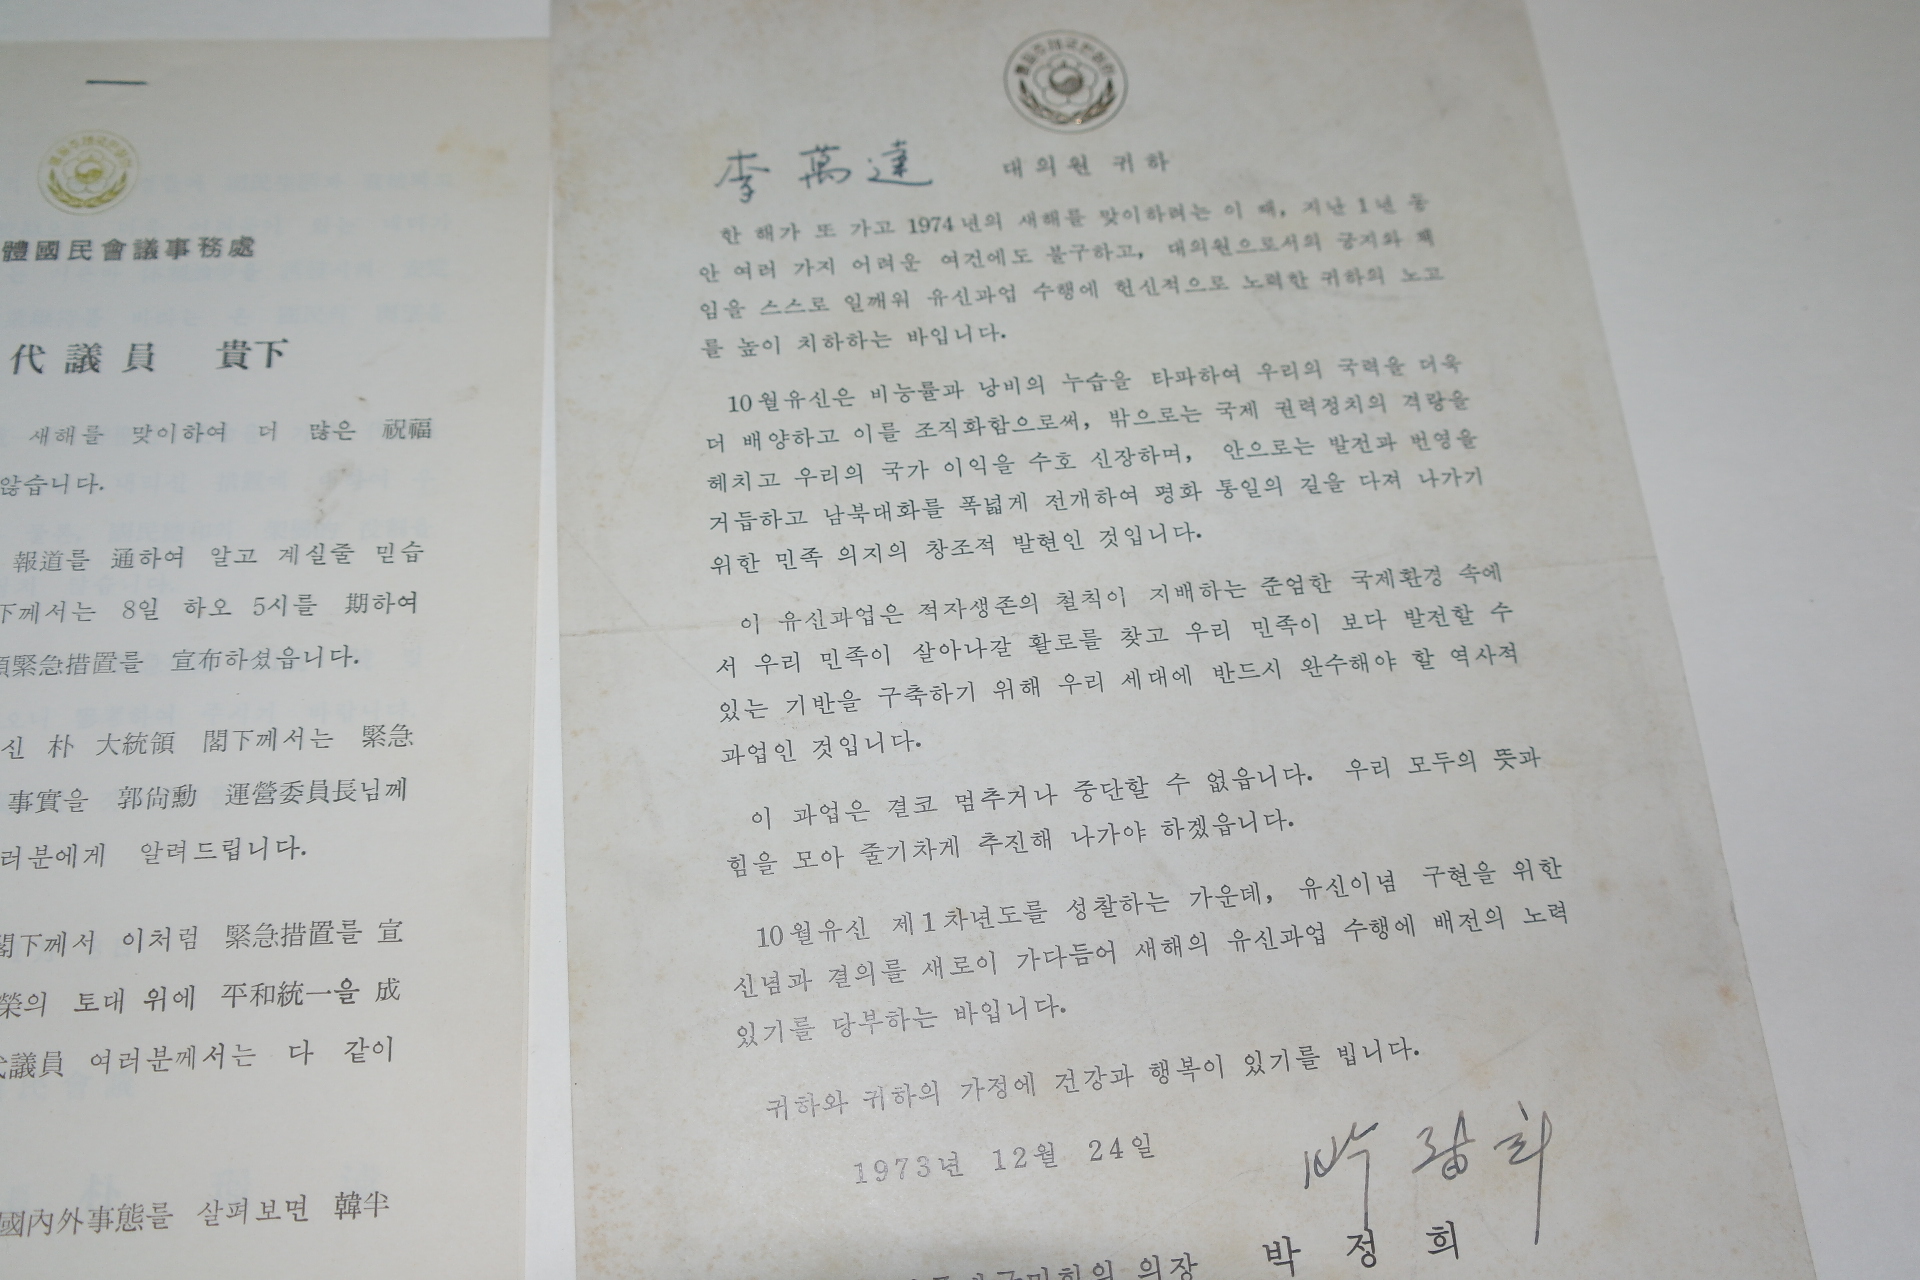 體國民會議事務處
代議員 貴下
새해를 맞이하여 더 많은 祝福
않습니다.
報道를 通하여 알고 계실줄 믿습
下께서는 8일 하오 5시를 期하여
領緊急措置를 宣布하셨읍니다.
신 朴 大統領 閣下께서는 緊急
事實을 郭尙勳 運營委員長님께
러분에게 알려드립니다.
閣下께서 이처럼 緊急措置를 宣
榮의 토대 위에 平和統一을 成
代議員 여러분께서는 다 같이
國內外事態를 살펴보면 韓半
李萬達 대의원 귀하
한 해가 또 가고 1974년의 새해를 맞이하려는 이 때, 지난 1년 동
안 여러 가지 어려운 여건에도 불구하고, 대의원으로서의 긍지와 책
임을 스스로 일깨워 유신과업 수행에 헌신적으로 노력한 귀하의 노고
를 높이 치하하는 바입니다.
10월유신은 비능률과 낭비의 누습을 타파하여 우리의 국력을 더욱
더 배양하고 이를 조직화함으로써, 밖으로는 국제 권력정치의 격랑을
헤치고 우리의 국가 이익을 수호 신장하며, 안으로는 발전과 번영을
거듭하고 남북대화를 폭넓게 전개하여 평화 통일의 길을 다져 나가기
위한 민족 의지의 창조적 발현인 것입니다.
이 유신과업은 적자생존의 철칙이 지배하는 준엄한 국제환경 속에
서 우리 민족이 살아나갈 활로를 찾고 우리 민족이 보다 발전할 수
있는 기반을 구축하기 위해 우리 세대에 반드시 완수해야 할 역사적
과업인 것입니다.
이 과업은 결코 멈추거나 중단할 수 없읍니다. 우리 모두의 뜻과
힘을 모아 줄기차게 추진해 나가야 하겠읍니다.
10월유신 제1차년도를 성찰하는 가운데, 유신이념 구현을 위한
신념과 결의를 새로이 가다듬어 새해의 유신과업 수행에 배전의 노력
있기를 당부하는 바입니다.
귀하와 귀하의 가정에 건강과 행복이 있기를 빕니다.
1973년 12월 24일
박정희
의장 박정희